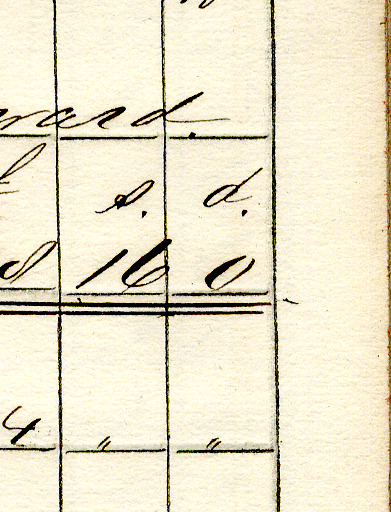 ward.
£ s. d.
8 16 0
4 " "